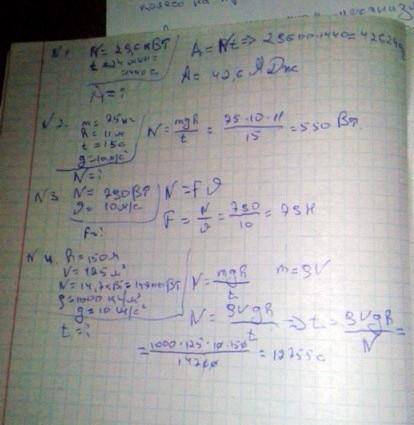 колесо на
N1. N = 29,6 кВт
t = 24 мин = 1440 с
A = ?
A = Nt => 29600·1440 = 42624
A = 42,6 МДж
N2. m = 75 кг
h = 11 м
t = 15 с
g = 10 м/с²
N = ?
N = mgh/t = 75·10·11/15 = 550 Вт
N3. N = 790 Вт
υ = 10 м/с
F = ?
N = Fυ
F = N/υ = 790/10 = 79 Н
N4. h = 150 м
V = 125 м³
N = 14,7 кВт = 14700 Вт
ρ = 1000 кг/м³
g = 10 м/с²
t = ?
N = mgh/t m = ρV
N = ρVgh/t => t = ρVgh/N =
= 1000·125·10·150/14700 = 12755 с